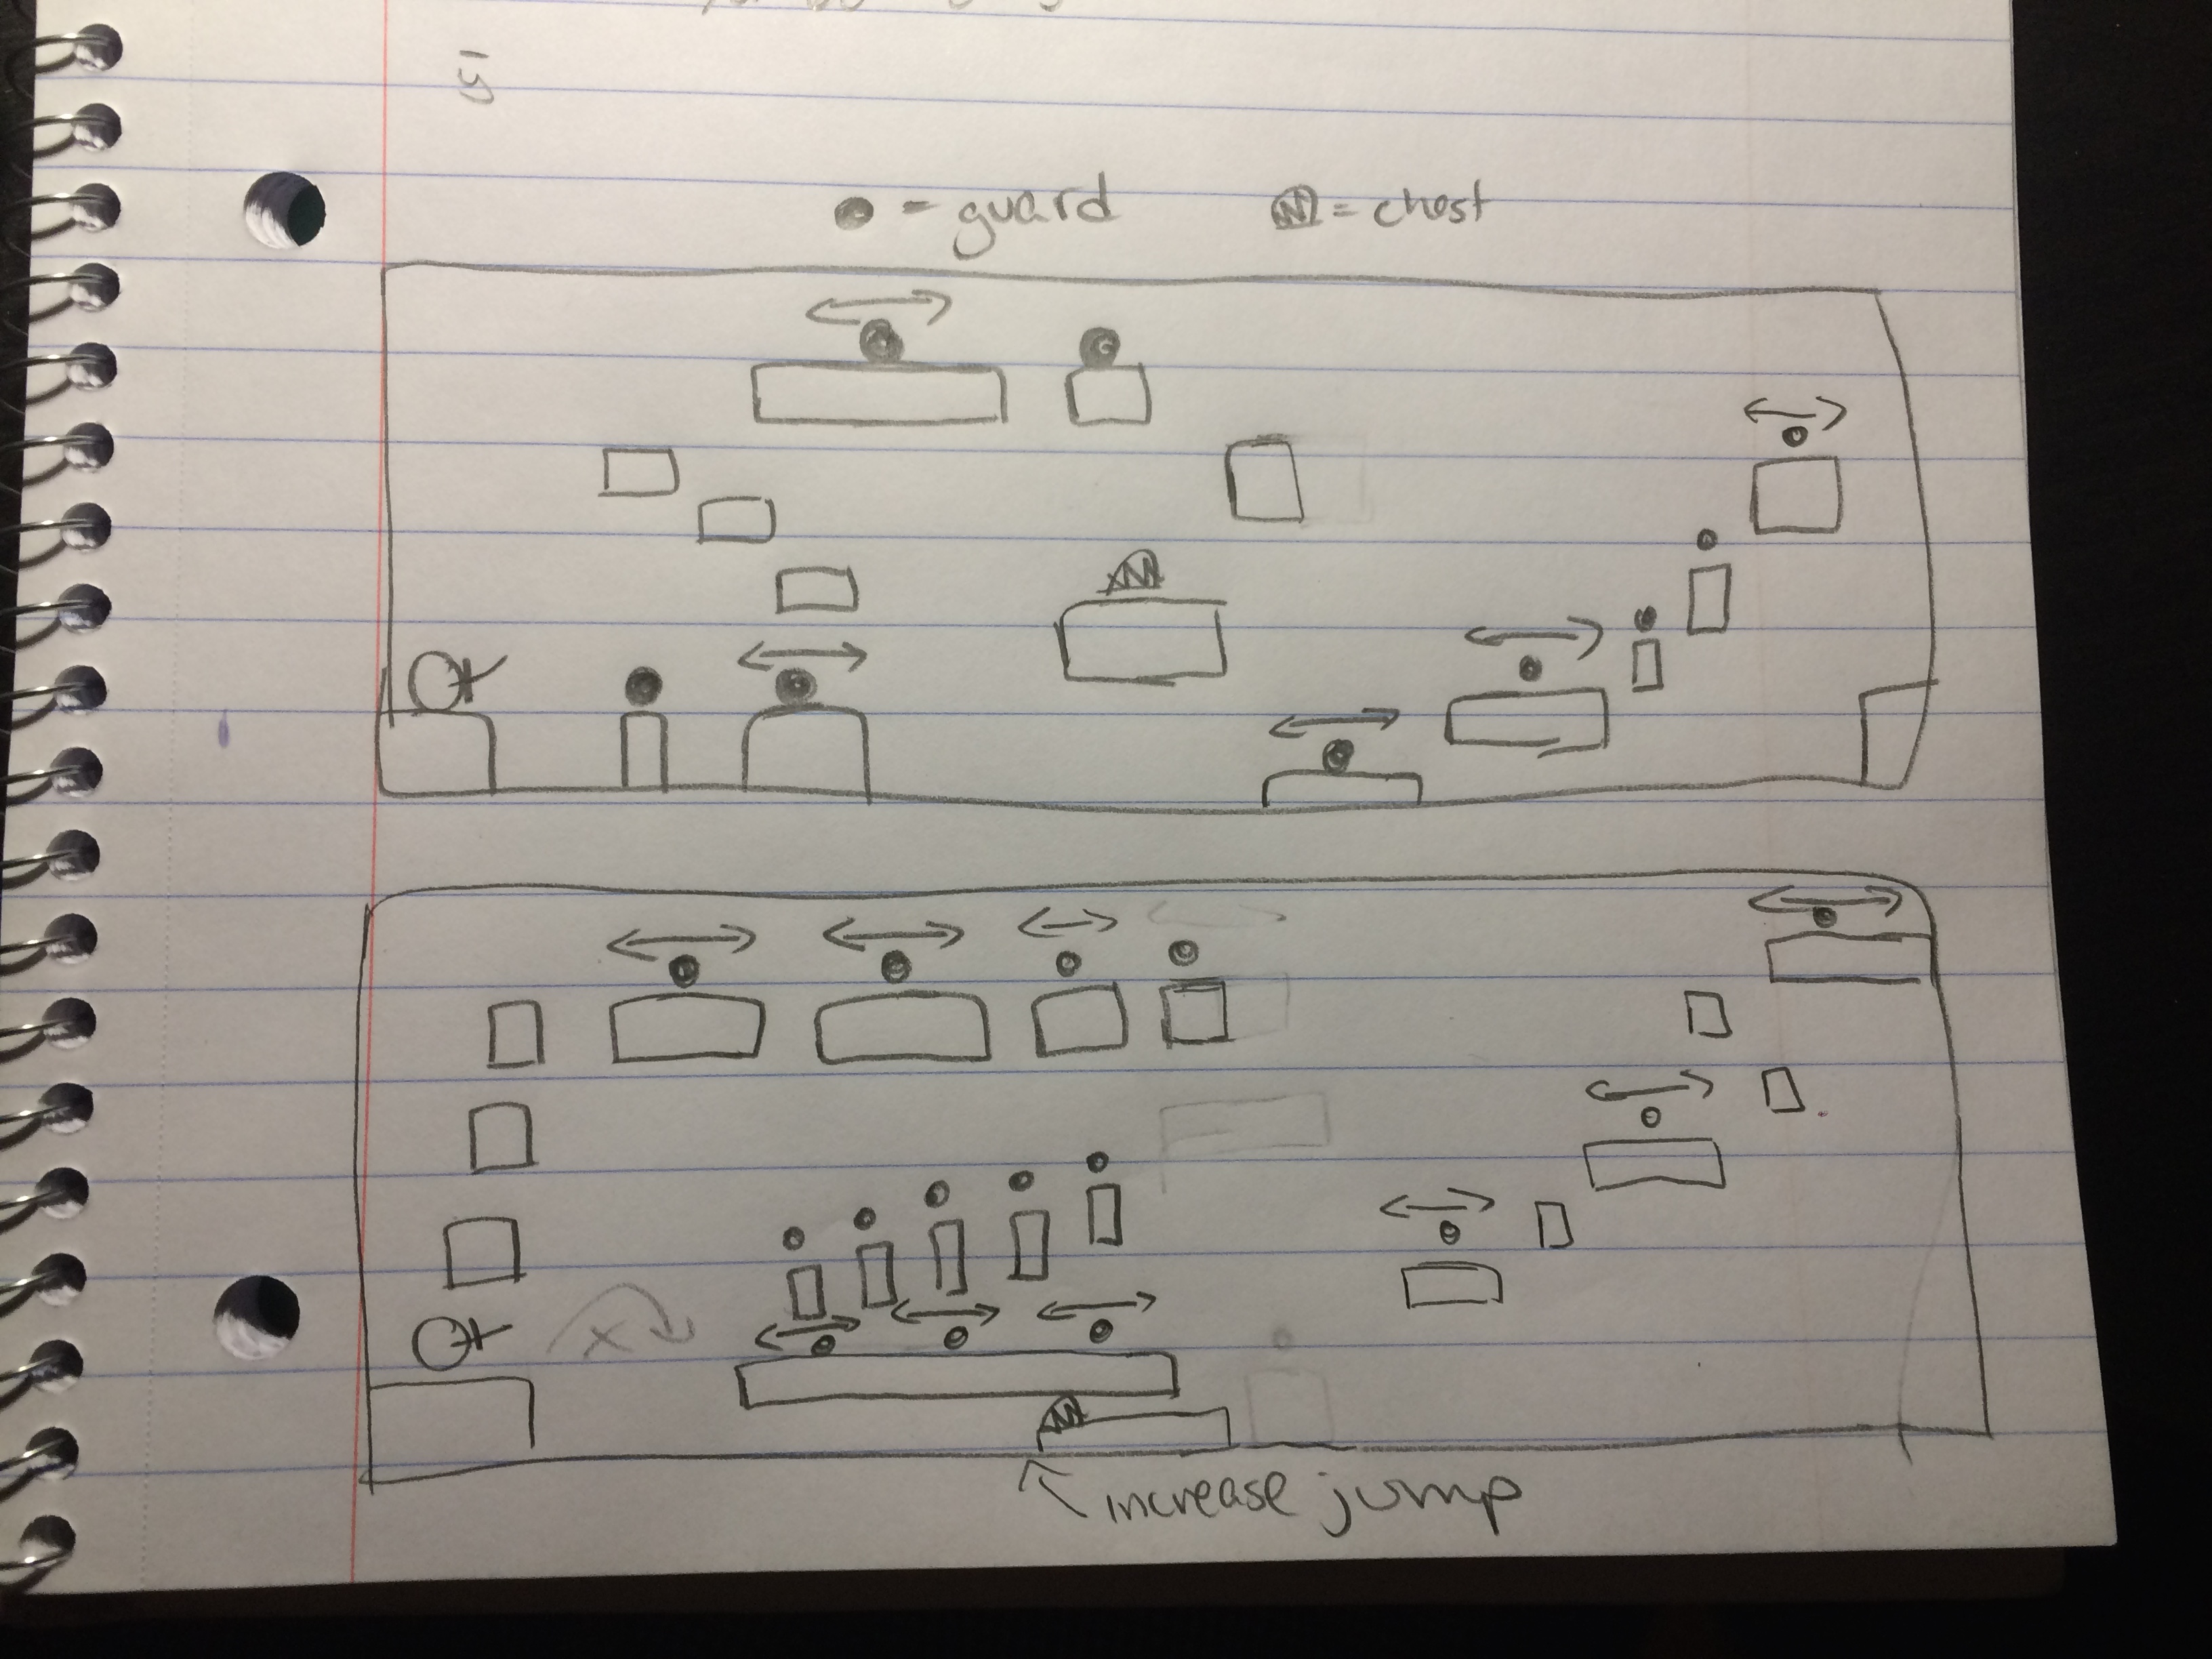 = guard = chest
increase jump